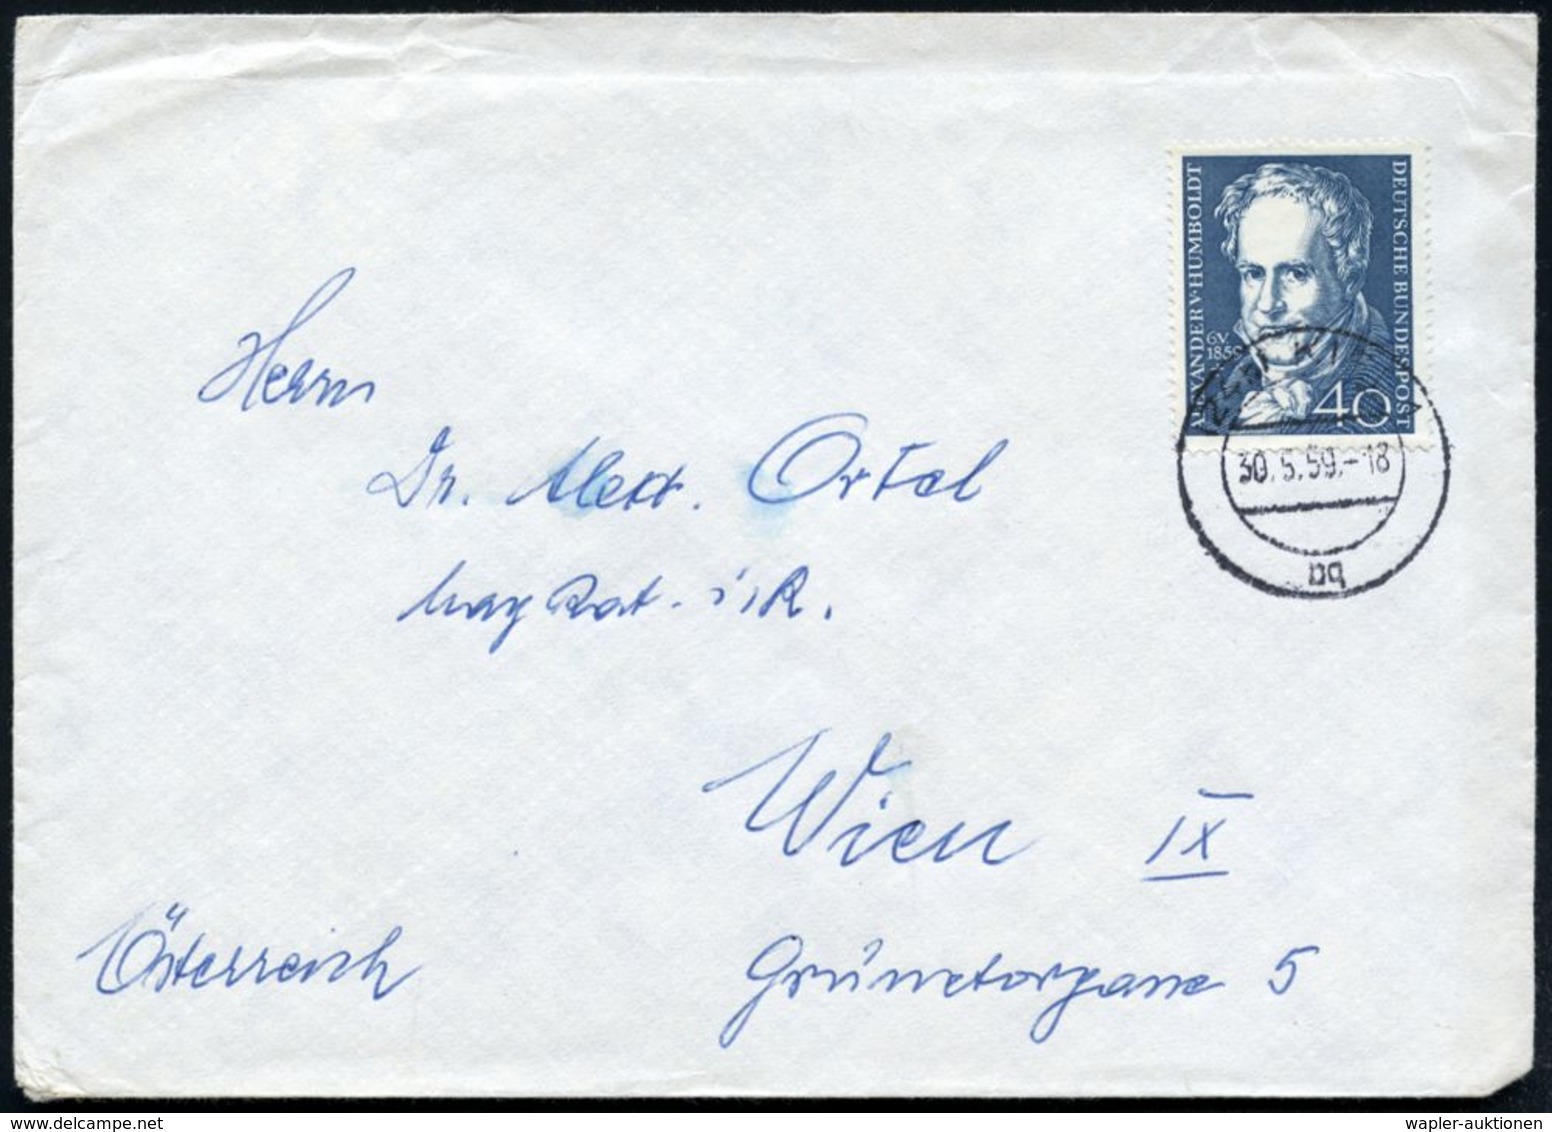 ALEXANDER V·HUMBOLDT
DEUTSCHE BUNDESPOST
6.V.
1859
40
30.5.59.-18
bq
Herrn
Dr. Alex. Ortel
Mag Rat. i. R.
Wien IX
Grünetorgasse 5
Österreich
wapler-auktionen